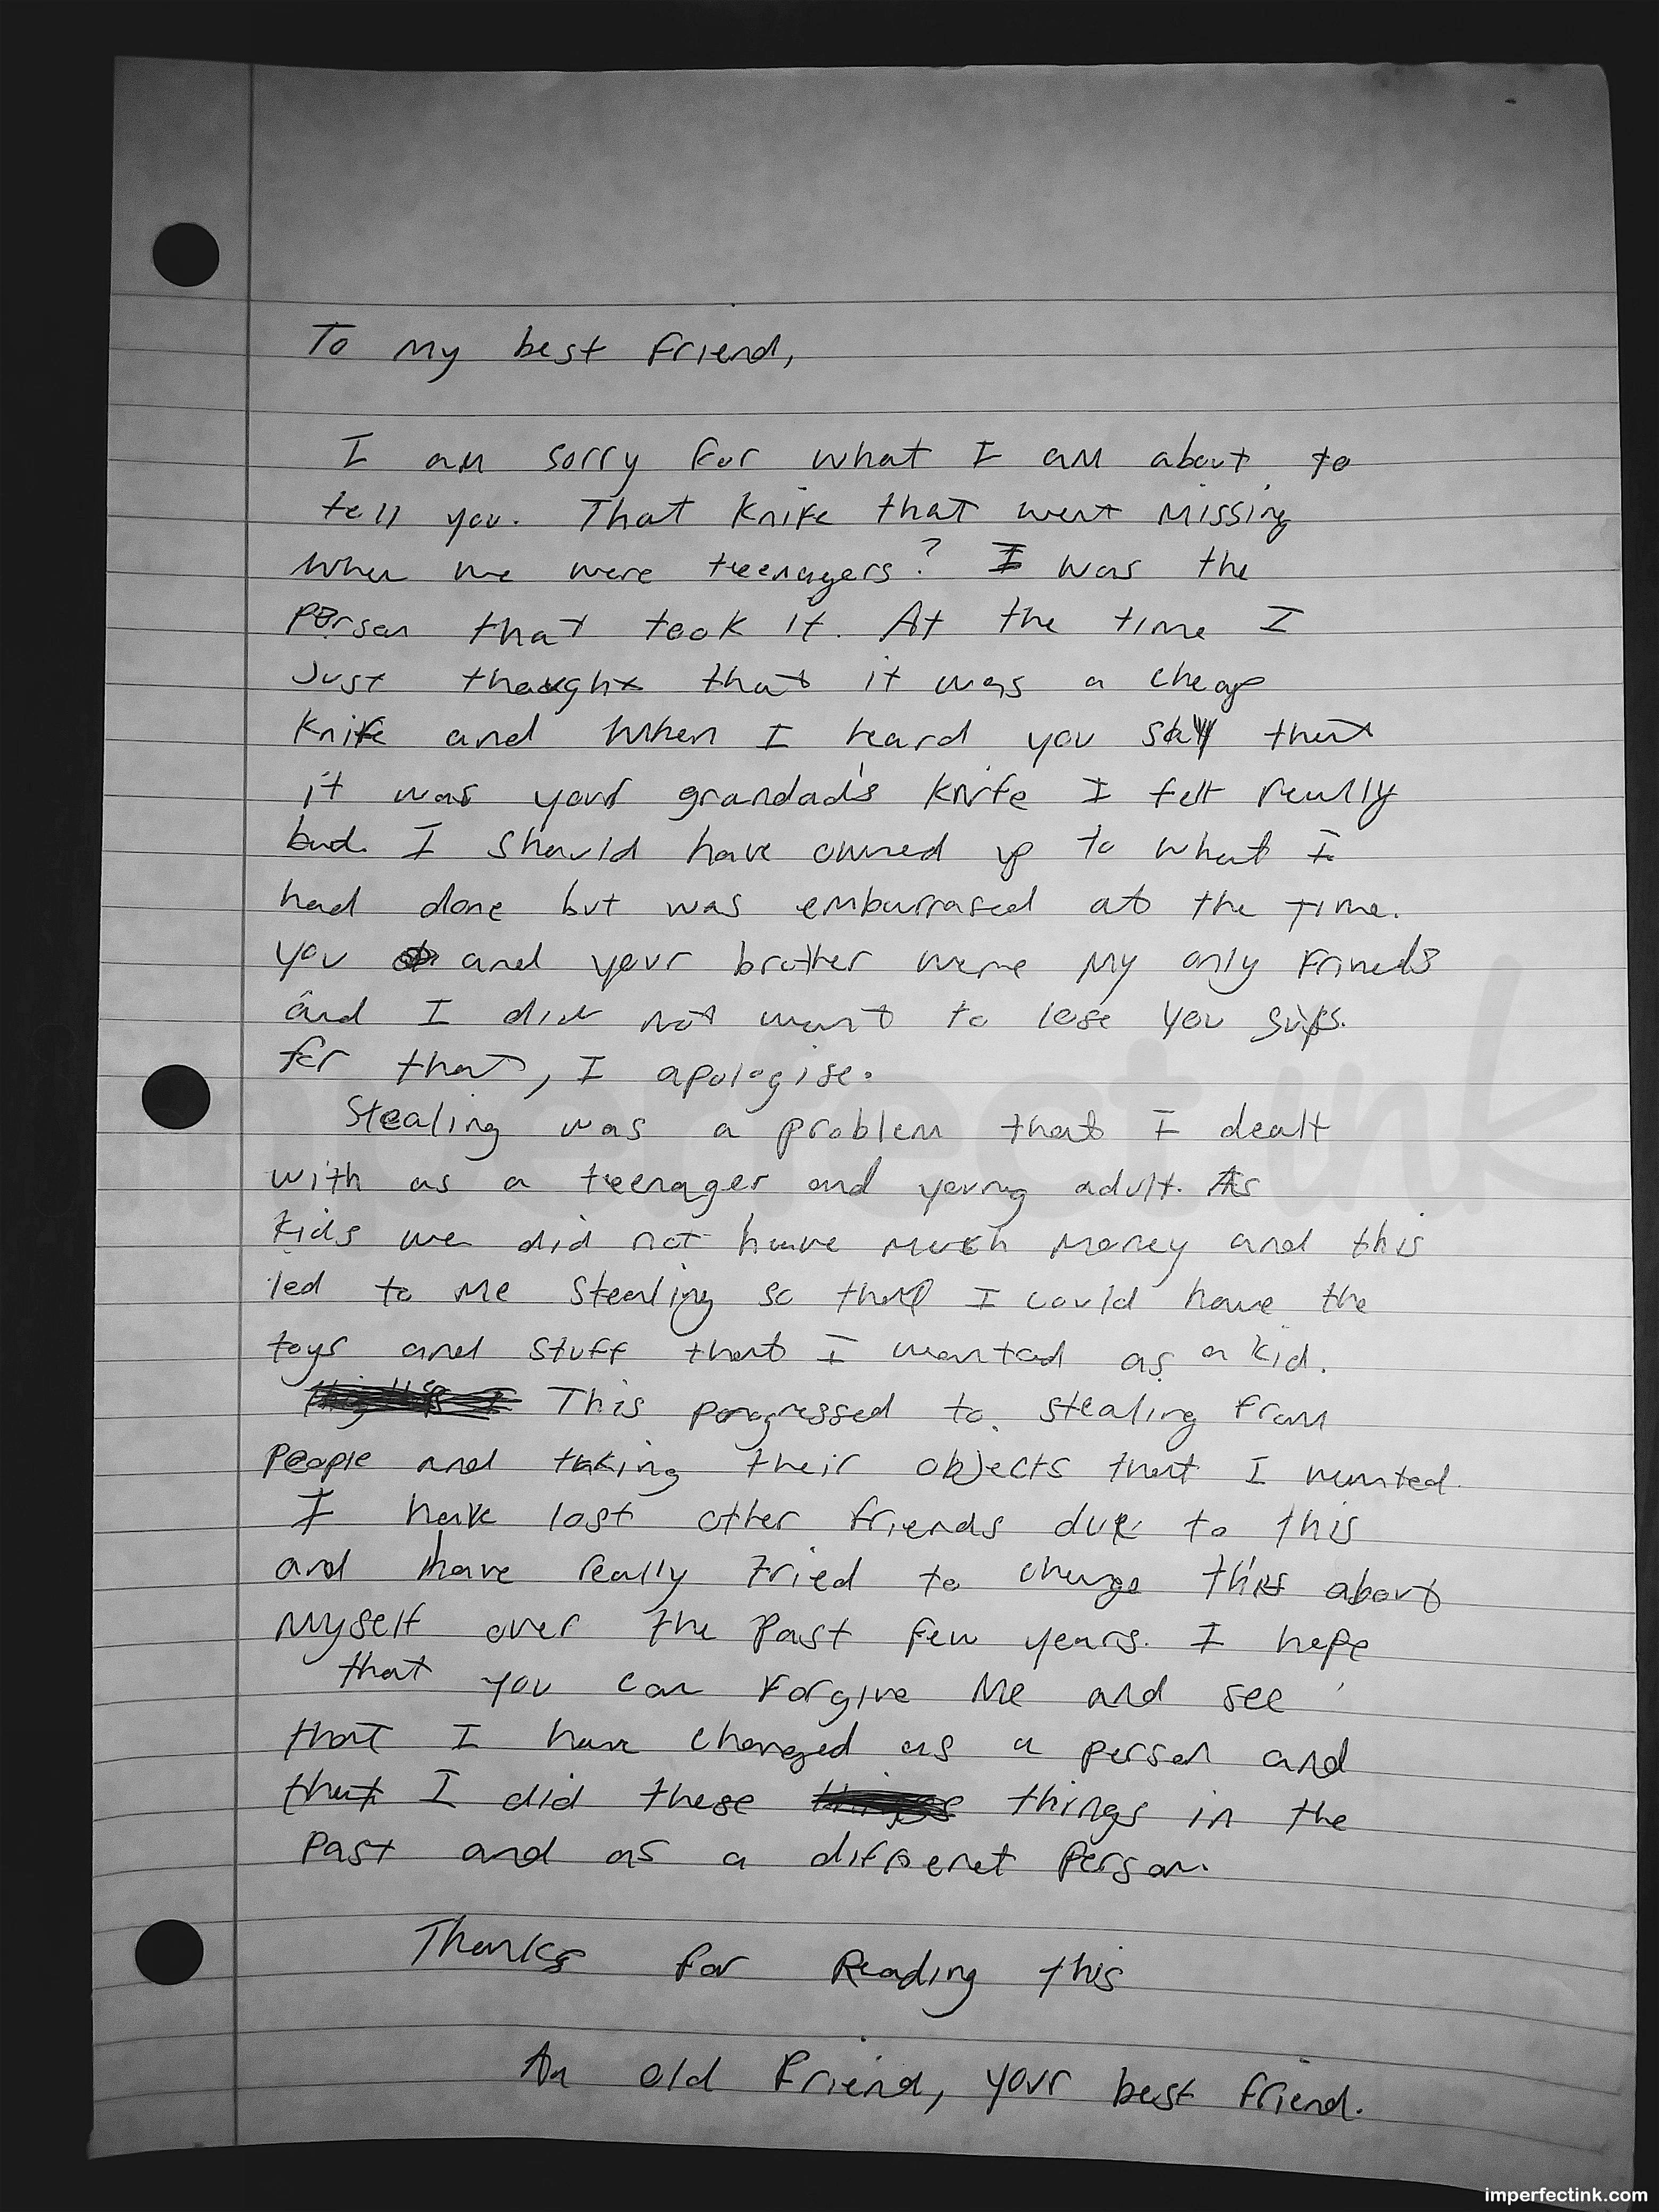 To my best friend,
I am sorry for what I am about to
tell you. That knife that went missing
when we were teenagers? I was the
person that took it. At the time I
Just thought that it was a cheap
knife and when I heard you say that
it was your grandad's knife I felt really
bad. I should have owned up to what I
had done but was emburrased at the time.
You and your brother were my only frineds
and I did not want to lose you guys.
for that, I apologise.
Stealing was a problem that I dealt
with as a teenager and young adult. As
kids we did not have much money and this
led to me stealing so that I could have the
toys and stuff that I wanted as a kid.
This porgressed to stealing from
people and taking their objects that I wanted.
I have lost other friends due to this
and have really tried to change this about
myself over the past few years. I hope
that you can forgive me and see
that I have changed as a person and
that I did these things things in the
past and as a differenet person.
Thanks for Reading this
An old friend, your best friend.
imperfect ink
imperfectink.com